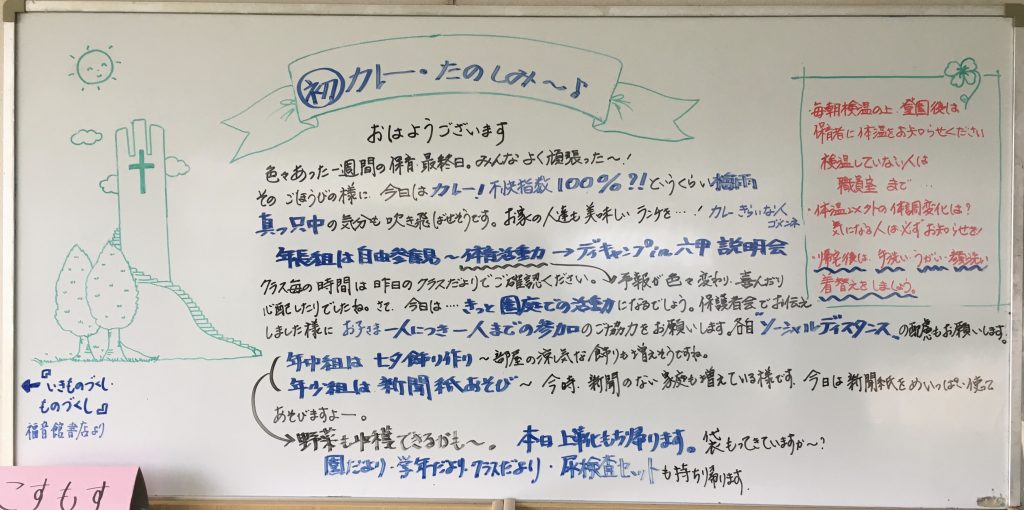 初カレー・たのしみ～♪
おはようございます
色々あった一週間の保育最終日。みんなよく頑張った～!
そのごほうびの様に、今日はカレー!不快指数100%?!というくらい梅雨
真っ只中の気分も吹き飛ばせそうです。お家の人達も美味しいランチを…!カレーきらいな人
ゴメンネ
年長組は自由参観～体育活動→デイキャンプin六甲 説明会
クラス毎の時間は昨日のクラスだよりでご確認ください。→予報が色々変わり、喜んだり
心配したりでしたね。さて、今日は…きっと園庭での活動になるでしょう。保護者会でお伝え
しました様にお子さま一人につき一人までの参加のご協力をお願いします。各自"ソーシャルディスタンス"の配慮もお願いします。
年中組は七夕飾り作り～部屋の涼し気な飾りも増えそうですね。
年少組は新聞紙あそび～今時、新聞のない家庭も増えている様です。今日は新聞紙をめいっぱい使って
あそびますよー。
→野菜も収穫できるかも～。 本日上靴も持ち帰ります。袋もってきていますか～?
園だより・学年だより・クラスだより・尿検査セットも持ち帰ります。
・毎朝検温の上、登園後は
保育者に体温をお知らせください
検温していない人は
職員室まで…
・体温以外の体調変化は?
気になる人は必ずお知らせを!
・帰宅後は、手洗い・うがい・顔洗い
着替えをしましょう。
←『いきものづくし・
ものづくし』
福音館書店より
こすもす